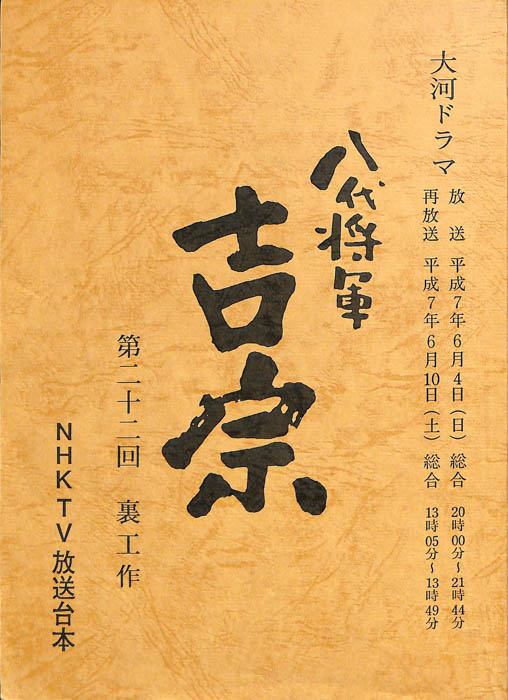 大河ドラマ
放送 平成7年6月4日(日) 総合 20時00分~21時44分
再放送 平成7年6月10日(土) 総合 13時05分~13時49分
八代将軍
吉宗
第二十二回 裏工作
NHKTV放送台本